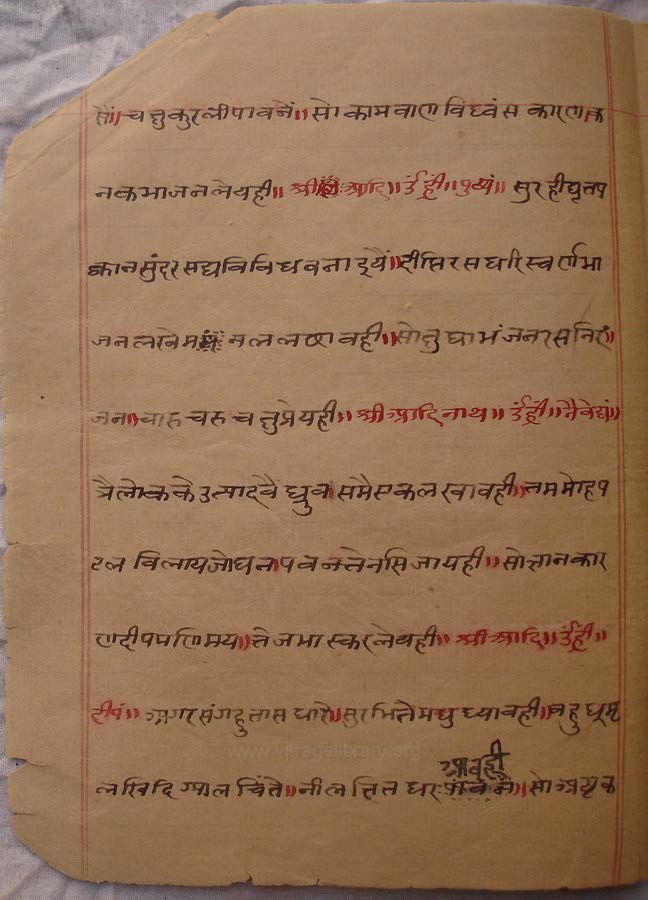 सौं॥ च तुकुरलीपावनें॥ सो कामवाण विध्वंस कारण॥क
नकभाजन लेयही॥ श्री आदि॥ उँह्रीं॥ पुष्पं॥ सुरहीघृतप
क्वान सुंदर सद्य विविध वनाइयैं॥ दीप्तिरसधरिस्वर्णभा
जन लखेम न ललचावही॥ सोक्षुधाभंजनरसनिरं॥
जन॥ चारु चरु च तुप्रेयही॥ श्री आदिनाथ॥ उँह्रीं॥ नैवेद्यं॥
त्रैलोकके उत्पादवै ध्रुव॥समैएकलखावही॥ तममोहप
टल विलायजोधन॥पवनतेनसिजायही॥ सोज्ञानकार
णदीपमणिमय॥ तेजभास्करलेयही॥ श्री आदि॥ उँह्री॥
दीपं॥ अगरसंगहुतासधारै॥सुरभितेमधुध्यावही॥बहुधूम्र
लखिदिग्पाल चिंते॥ नीलसित्तधर आवही॥ सो अष्टक
www.vitragelibrary.org